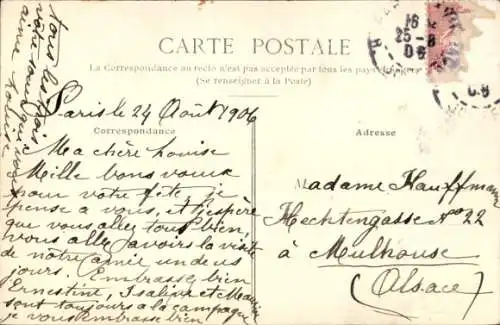 CARTE POSTALE
La Correspondance au recto n'est pas acceptée par tous les pays étrangers
(Se renseigner à la Poste)
Paris le 24 Août 1906
Correspondance
Adresse
Ma chère Louise
Mille bons vœux
pour votre fête, je
pense à vous, et j'espère
que vous allez tous bien,
vous allez avoir la visite
de notre amie un de ces
jours. Embrassez bien
Ernestine,
sont toujours à la campagne
je vous embrasse bien
tous les trois
votre
aime
Madame Kauffmann
Hechtengasse No 22
à Mulhouse
(Alsace)
16
25-8
06